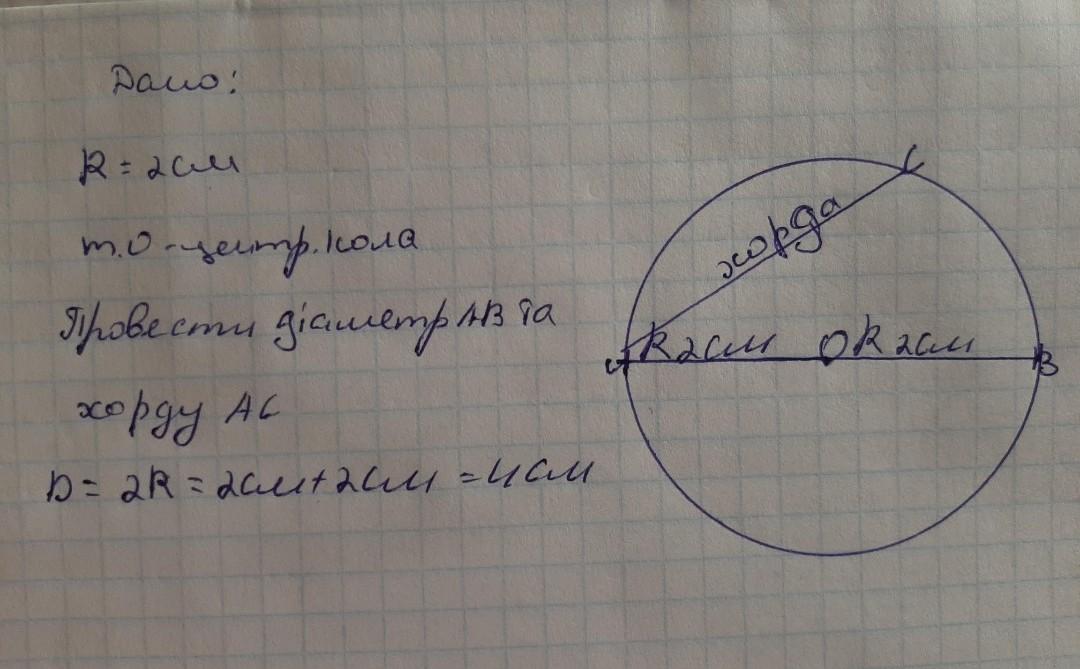 Дано:
R = 2см
т.О - центр. кола
Провести діаметр АВ та
хорду АС
D = 2R = 2см + 2см = 4см
С
хорда
А R 2см О R 2см В